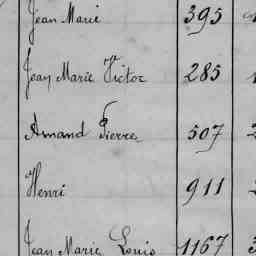 Jean Marie 395
Jean Marie Victor 285
Amand Pierre 507
Henri 911
Jean Marie Louis 1167